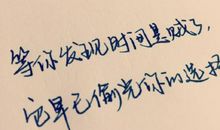 等你发现时间是贼了，
它早已偷光你的选择